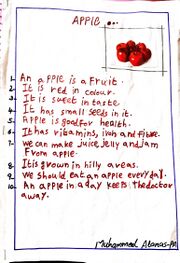 APPLE ...
1. An apple is a Fruit.
2. It is red in colour.
3. It is sweet in taste.
4. It has small seeds in it.
5. Apple is good for health.
6. It has vitamins, iron and Fibre.
7. we can make juice, jelly and jam
From apple.
8. It is grown in hilly areas.
9. We should eat an apple every day.
10. An apple in a day keeps the doctor
away.
Muhammed